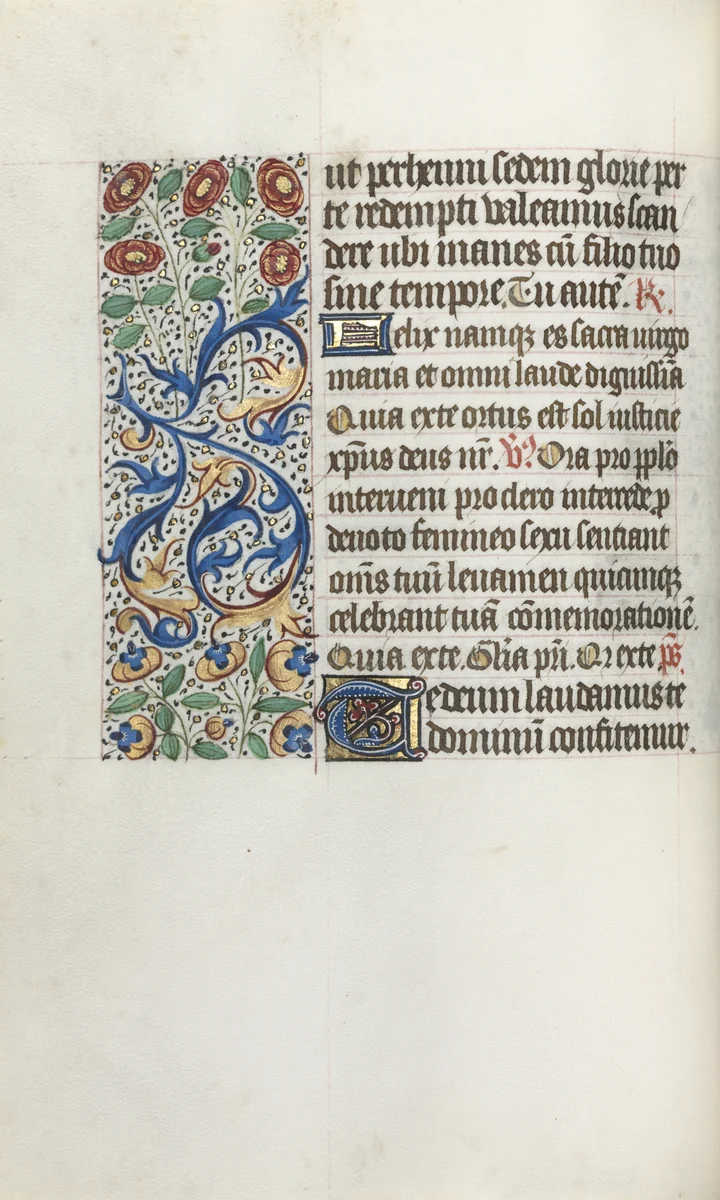 ut perhenni sedem glorie per
te redempti valeamus scan
dere ubi manes cũ filio tuo
sine tempore. Tu autẽ. R̃.
Felix namqꝫ es sacra uirgo
maria et omni laude digniss̃ia
Quia exte ortus est sol iusticie
xp̃us deus nr̃. V̊. Ora pro pp̃lo
interueni pro clero intercede ꝓ
deuoto femineo sexu sentiant
om̃s tuũ leuamen quicumqꝫ
celebrant tuã cõmemorationẽ.
Quia exte. Gl̃ia pr̃i. Qr exte p̃s.
Te deum laudamus te
dominũ confitemur.